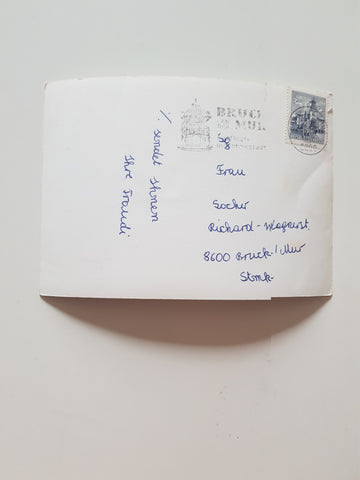 BRUCK
A. D. MUR
Sg
Frau
Socher
Richard-Wagnerst.
8600 Bruck/Mur
Stmk.
⁒ sendet Ihnen
Ihre Traudi